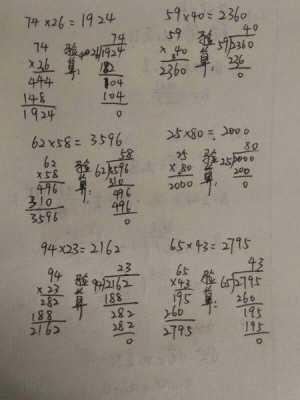 74×26=1924
74
×26
444
148
1924
验算:
74
26)1924
182
104
104
0
59×40=2360
59
×40
2360
验算:
40
59)2360
236
0
62×58=3596
62
×58
496
310
3596
验算:
58
62)3596
310
496
496
0
25×80=2000
25
×80
2000
验算:
80
25)2000
200
0
94×23=2162
94
×23
282
188
2162
验算:
23
94)2162
188
282
282
0
65×43=2795
65
×43
195
260
2795
验算:
43
65)2795
260
195
195
0